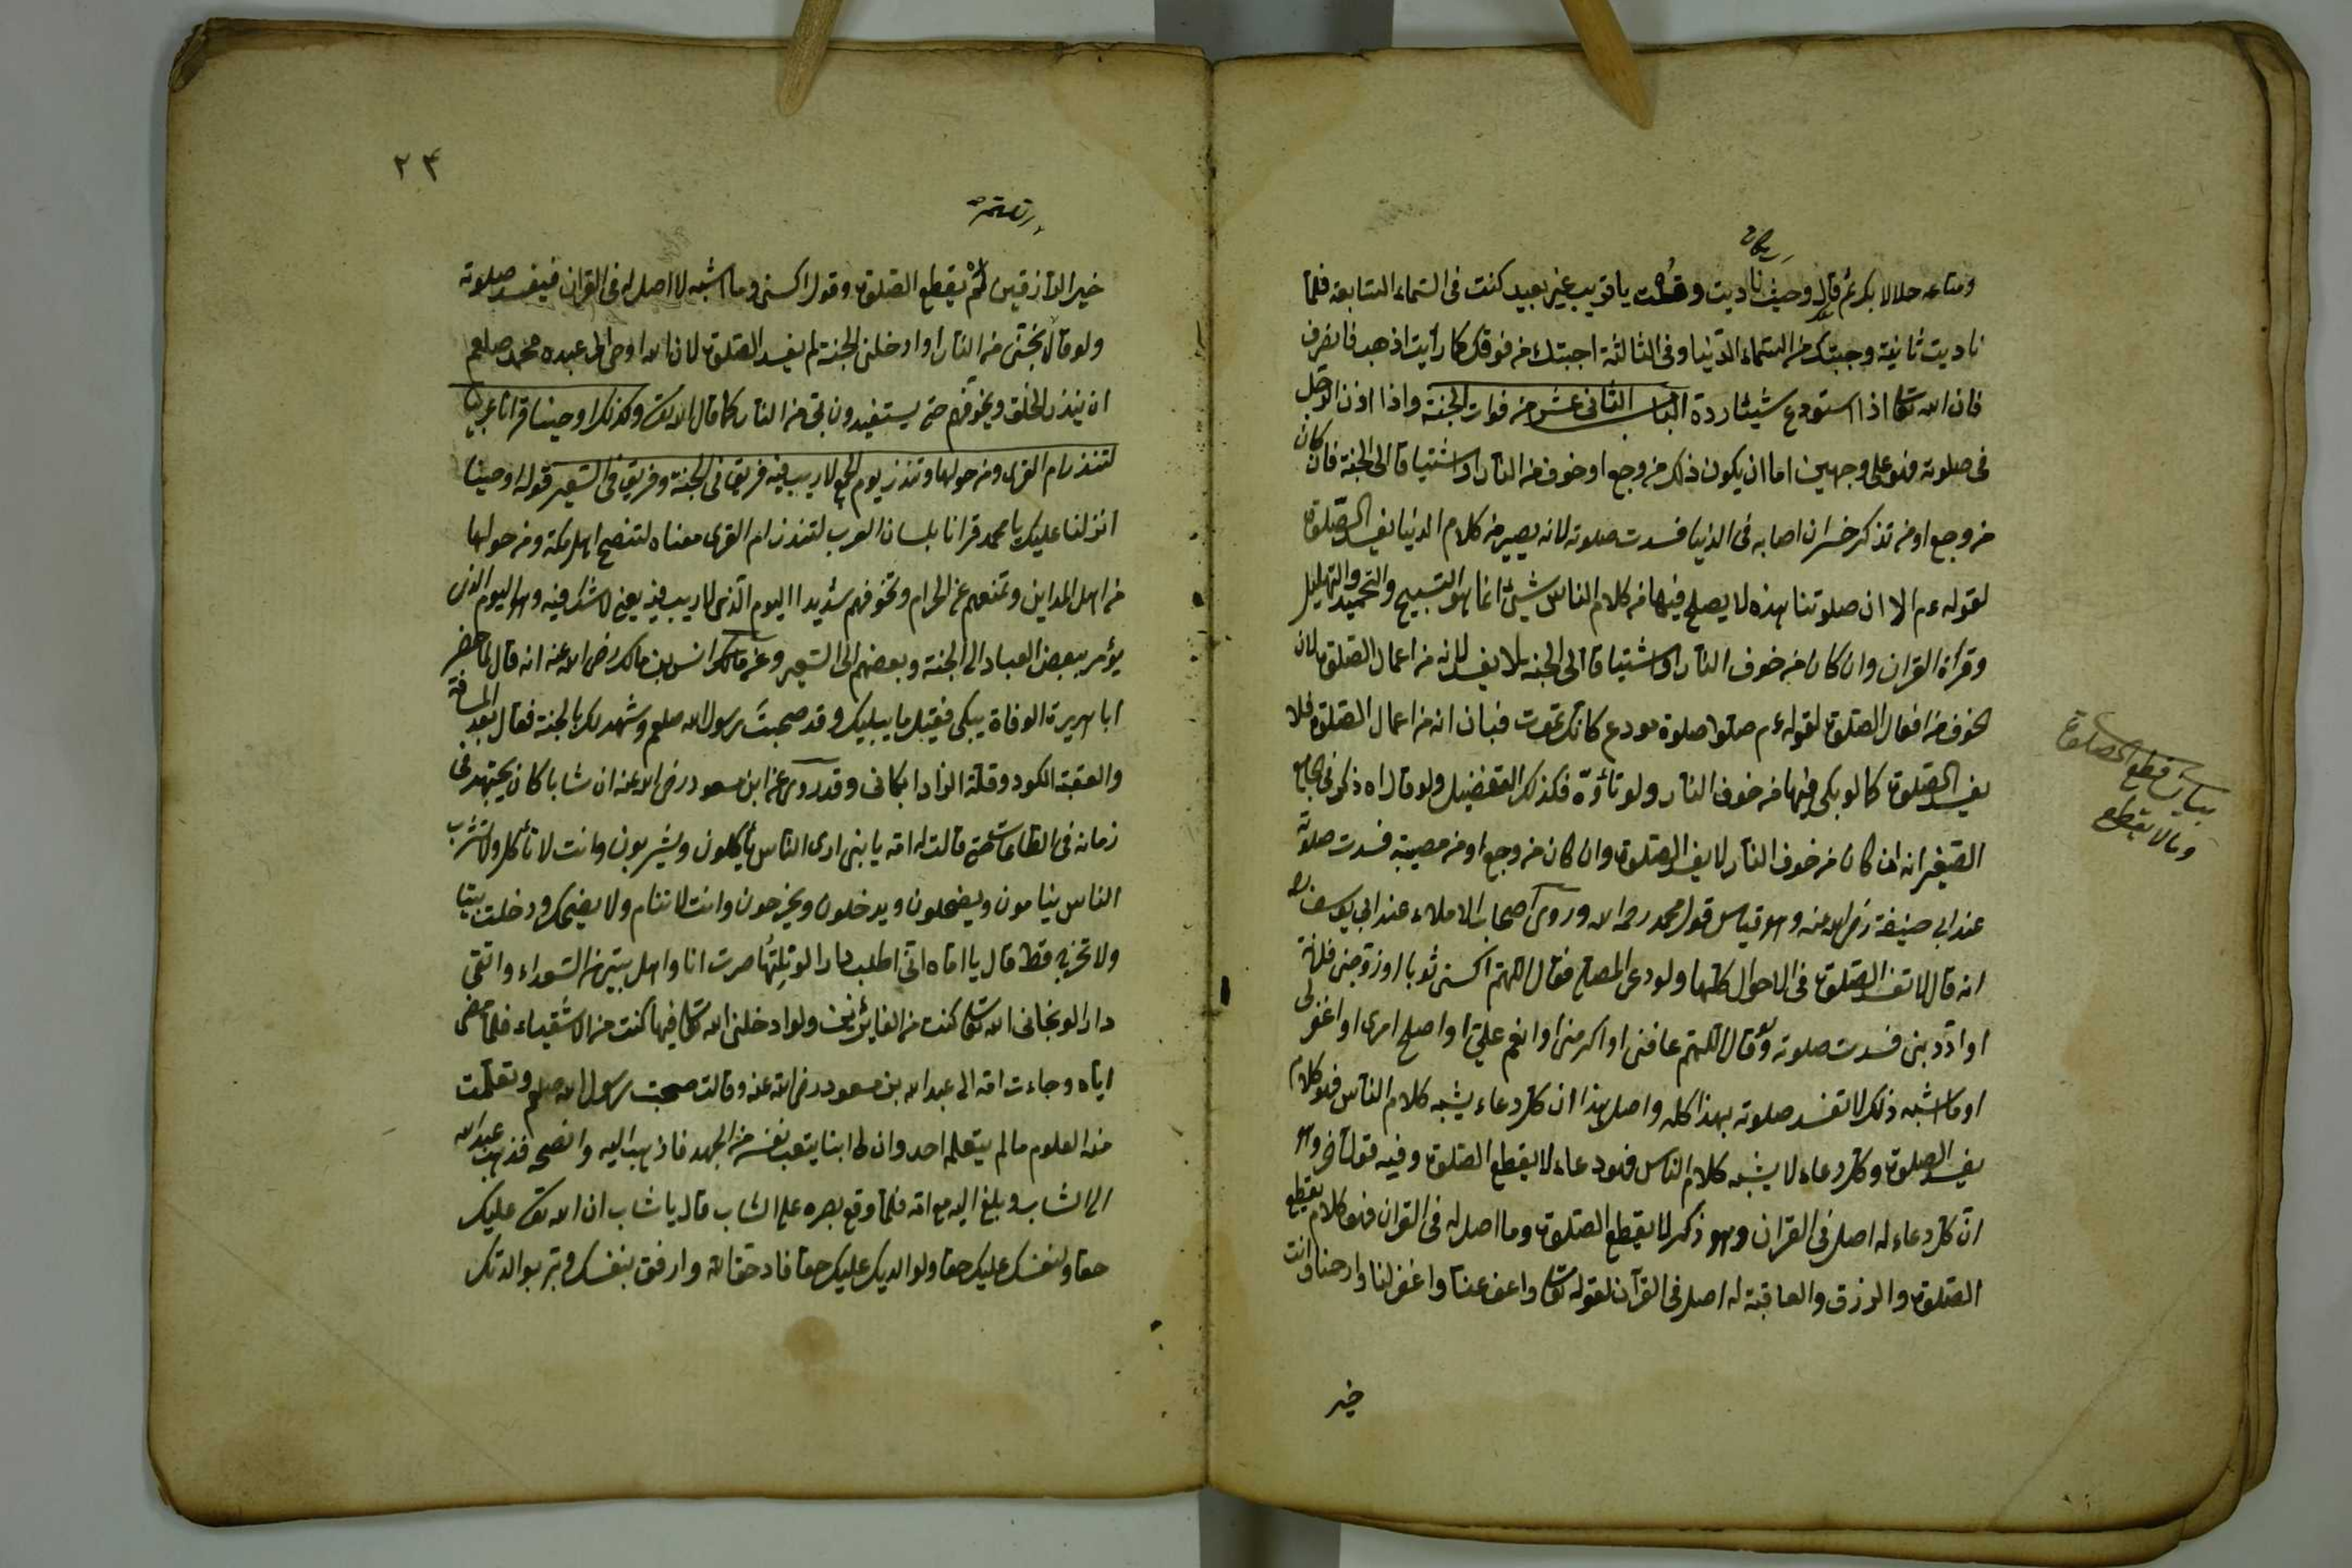 ومتاعه حلالا بكم ثم قال وحيث ناديت وقلت يا قريب غير بعيد كنت فى السماء السابعة فلما
ناديت ثانية وجبتك من السماء الدنيا وفى الثالثة اجبتك من فوقك كما رأيت اذهب فانصرف
فان الله تعالى اذا استودع شيئا رده الباب الثانى عشر من فوات الجنة واذا اذن الرجل
فى صلوته فهو على وجهين اما ان يكون ذلك من وجع او خوف من النار او اشتياقا الى الجنة فان كان
من وجع او من تذكر خسران اصابه فى الدنيا فسدت صلوته لانه يصير من كلام الدنيا يفسد الصلوة
لقوله عم الا ان صلوتنا هذه لا يصلح فيها من كلام الناس شئ انما هو التسبيح والتحميد والتهليل
وقرأة القران وان كان من خوف النار او اشتياقا الى الجنة لا يفسد لانه من اعمال الصلوة لان
الخوف من افعال الصلوة لقوله عم صلوا صلوة مودع كانك تموت فبان انه من اعمال الصلوة فلا
يفسد الصلوة كما لو بكى فيها من خوف النار ولو تأوه فكذلك التفضيل ولو قال اه ذكر فى الجامع
الصغير انه ان كان من خوف النار لا يفسد الصلوة وان كان من وجع او من مصيبة فسدت صلوته
عند ابى حنيفة رضى الله عنه وهو قياس قول محمد رحمه الله وروى اصحاب الاملاء عند ابى يوسف ره
انه قال لا تفسد الصلوة فى الاحوال كلها ولو دعى المصلى فقال اللهم اكسنى ثوبا او زوجنى فلانة
او ادّبنى فسدت صلوته ولو قال اللهم عافنى او اكرمنى او انعم على او اصلح امرى او اغفر لى
او ما اشبه ذلك لا تفسد صلوته بهذا كله واصل هذا ان كل دعاء يشبه كلام الناس فهو كلام
يفسد الصلوة وكل دعاء لا يشبه كلام الناس فهو دعاء لا يقطع الصلوة وفيه قول آخر وهو
ان كل دعاء له اصل فى القران وهو ذكر لا يقطع الصلوة وما اصل له فى القران فهو كلام يقطع
الصلوة والرزق والعاقبة له اصل فى القرآن لقوله تعالى واعف عنا واغفر لنا وارحمنا وانت
خير
بيان قطع الصلوة
وما لا يقطع
٢٤
خير الرازقين لم يقطع الصلوة وقوله اكسنى وما اشبه لا اصل له فى القران فيفسد صلوته
ولو قال نجنى من النار او ادخلنى الجنة لم يفسد الصلوة لان الله اوحى الى عبده محمد صلعم
ان ينذر الخلق ويخوفهم حتى يستفيدون بحق من النار كما قال الله تعالى وكذلك اوحينا قرانا عربيا
لتنذر ام القرى ومن حولها وتنذر يوم الجمع لا ريب فيه فريق فى الجنة وفريق فى السعير قوله اوحينا
انزلنا عليك يا محمد قرانا بلسان العرب لتنذر ام القرى معناه لتنصح اهل مكة ومن حولها
من اهل المداين وتمنعهم عن الحرام وتخوفهم شديدا اليوم الذى لا ريب فيه يعنى لا شك فيه وهو اليوم الذى
يؤمر ببعض العباد الى الجنة وبعضهم الى السعير وعن مالك انس بن مالك رضى الله عنه انه قال لما حضر
ابا هريرة الوفاة يبكى فقيل ما يبكيك وقد صحبت رسول الله صلعم وشهد لك بالجنة فقال بعد المسافة
والعقبة الكود وقلة الزاد ابكانى وقد روى عن ابن مسعود رضى الله عنه ان شابا كان يجتهد فى
زمانه فى الطاعات حتى قالت له امه يا بنى ارى الناس يأكلون ويشربون وانت لا تأكل ولا تشرب
الناس ينامون ويضحكون ويدخلون ويخرجون وانت لا تنام ولا يضحك ودخلت بيتا
ولا تخرج قط قال يا اماه انى اطلب دارا لو نلتها صرت انا واهل بيتى من السعداء واتقى
دارا لو نجانى الله تعالى كنت من الفايزين ولو ادخلنى الله تعالى فيها كنت من الاشقياء فلما مضى
اياه وجاءت امه الى عبد الله بن مسعود رضى الله عنه وقالت صحبت رسول الله صلعم وتعلمت
منه العلوم ما لم يتعلم احد وان لى ابنا يتعب نفسه من الجهد فاذهب اليه وانصحه فذهب عبد الله
الى الشاب وبلغ اليه مع امه فلما وقع بصره على الشاب قال يا شاب ان الله تعالى عليك
حقا ولنفسك عليك حقا ولوالديك عليك حقا فاد حق الله وارفق بنفسك وبر بوالدتك